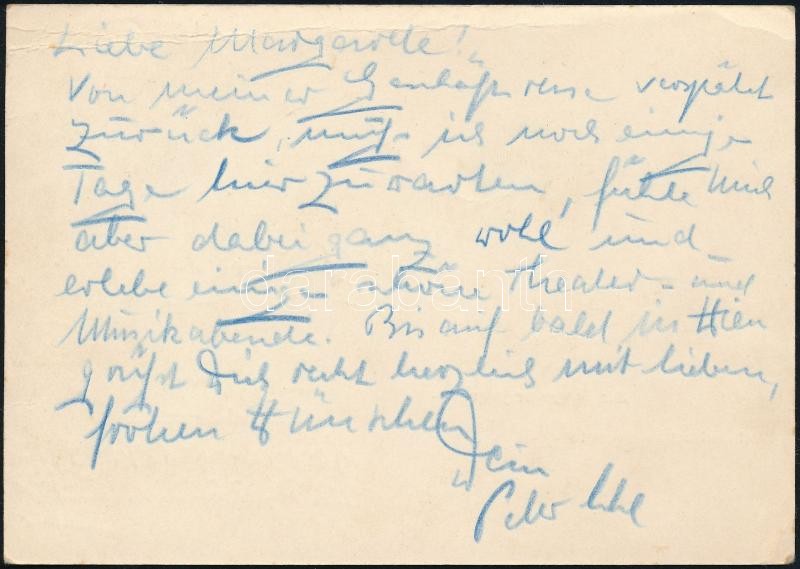 Liebe Margarete!
Von meiner verspätet
zurück, muß ich noch einige
Tage hier zuwarten, fühle mich
aber dabei ganz wohl und
erlebe einige schöne Theater- und
Musikabende. Bis auf bald in Wien
grüßt Dich recht herzlich mit lieben,
frohen Wünschen
Dein
Peter
darabanth